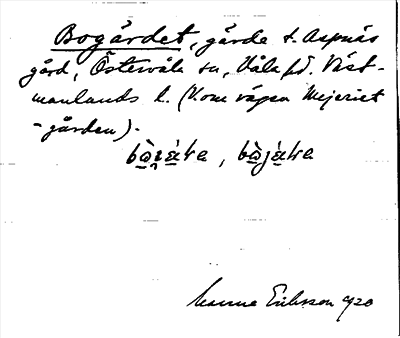 Bogärdet, gärde t. Aspnäs
gård, Östervåla sn, Våla hd. Väst-
manlands l. (Vom vägen Mejeriet
- gården).
Manne Eriksson 1920